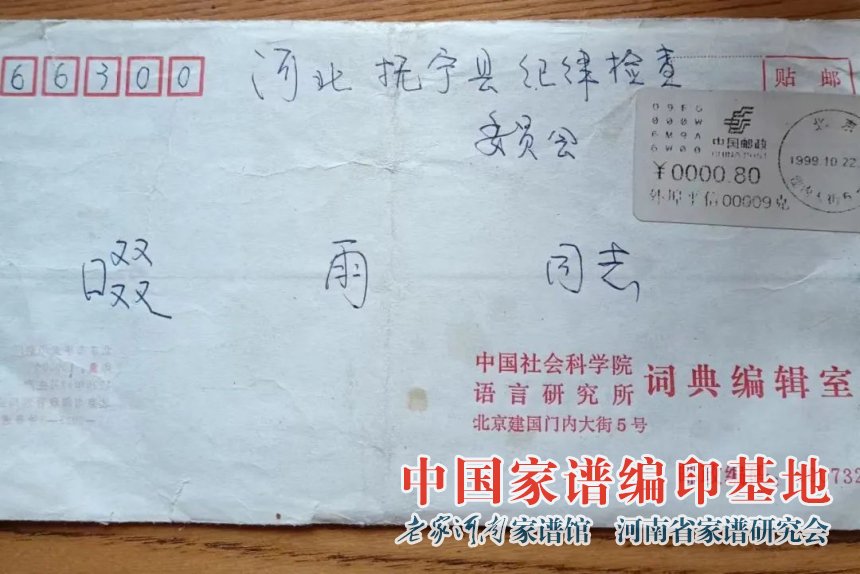 66300
河北 抚宁县纪律检查
委员会
贴邮
09FG
000W
6M9A
6W00
中国邮政
CHINA POST
¥0000.80
外埠平信00009克
北京
1999.10.22
雨 同志
中国社会科学院
语言研究所
词典编辑室
北京建国门内大街5号
732
中国家谱编印基地
老家河南家谱馆 河南省家谱研究会